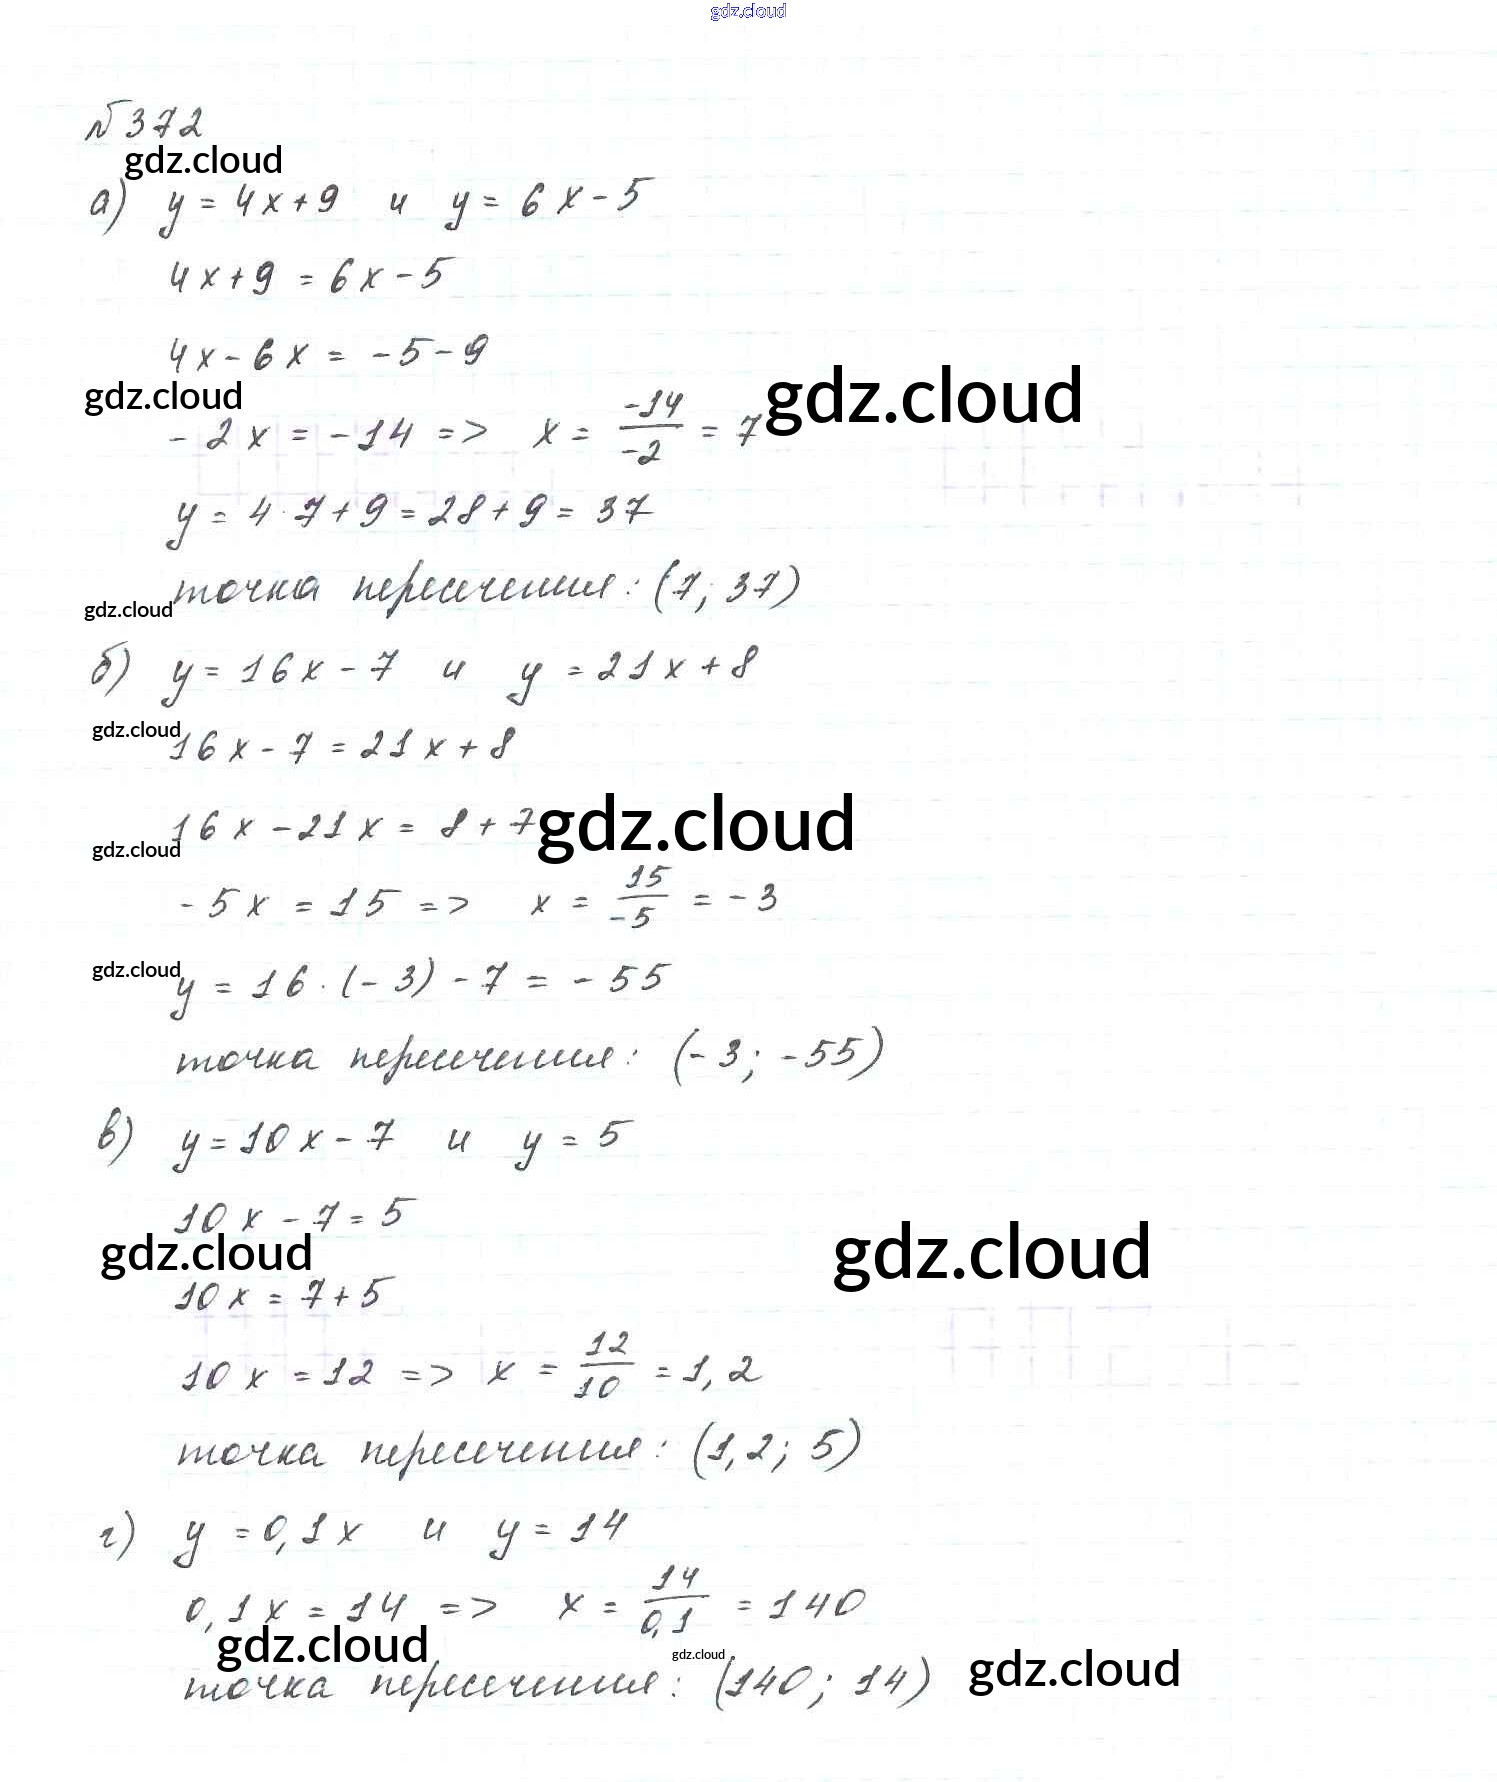 gdz.cloud
№ 372
gdz.cloud
а) y = 4x + 9 и y = 6x - 5
4x + 9 = 6x - 5
4x - 6x = - 5 - 9
gdz.cloud
gdz.cloud
- 2x = - 14 => x = -14/-2 = 7
y = 4 · 7 + 9 = 28 + 9 = 37
точка пересечения: (7; 37)
gdz.cloud
б) y = 16x - 7 и y = 21x + 8
gdz.cloud
16x - 7 = 21x + 8
16x - 21x = 8 + 7
gdz.cloud
gdz.cloud
- 5x = 15 => x = 15/-5 = - 3
gdz.cloud
y = 16 · (- 3) - 7 = - 55
точка пересечения: (- 3; - 55)
в) y = 10x - 7 и y = 5
10x - 7 = 5
gdz.cloud
gdz.cloud
10x = 7 + 5
10x = 12 => x = 12/10 = 1,2
точка пересечения: (1,2; 5)
г) y = 0,1x и y = 14
0,1x = 14 => x = 14/0,1 = 140
gdz.cloud
gdz.cloud
gdz.cloud
точка пересечения: (140; 14)